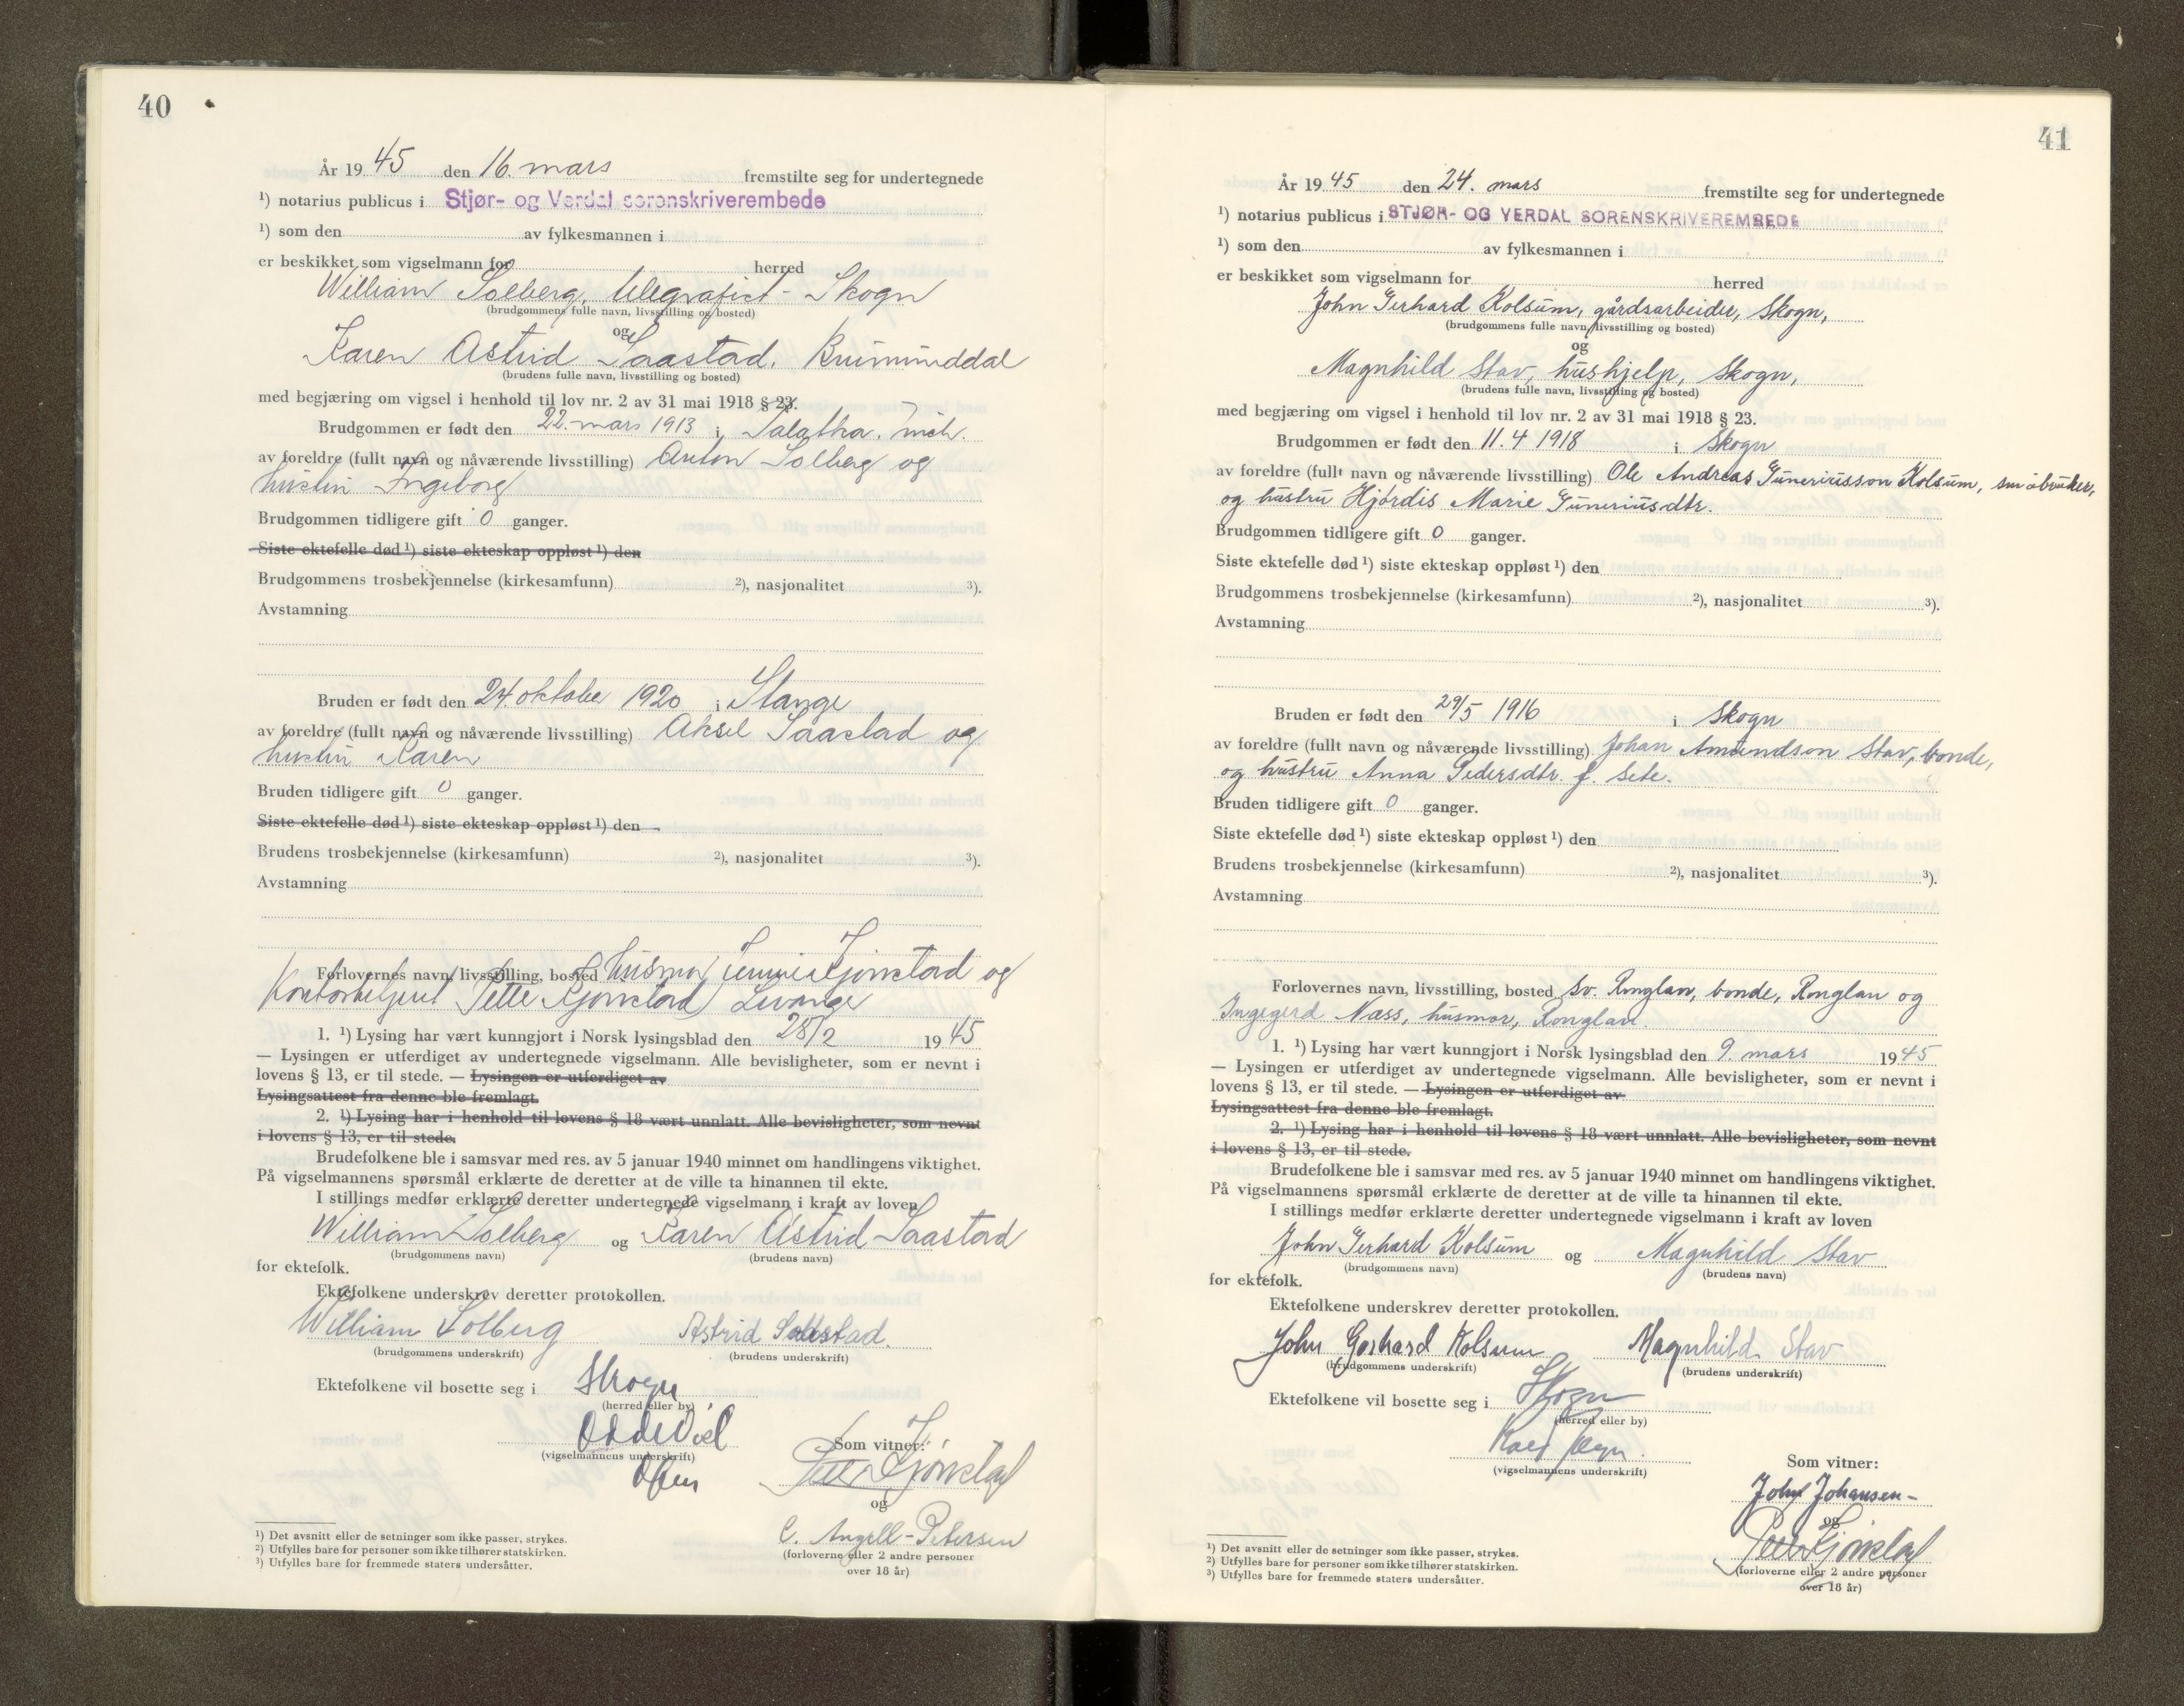 40
År 1945 den 16. mars fremstilte seg for undertegnede
¹) notarius publicus i Stjør- og Verdal sorenskriverembede
¹) som den av fylkesmannen i
er beskikket som vigselmann for herred
William Solberg, telegrafist - Skogn
(brudgommens fulle navn, livsstilling og bosted)
og
Karen Astrid Saastad, Brumunddal
(brudens fulle navn, livsstilling og bosted)
med begjæring om vigsel i henhold til lov nr. 2 av 31 mai 1918 § 23.
Brudgommen er født den 22. mars 1913 i
av foreldre (fullt navn og nåværende livsstilling) Anton Solberg og
hustru Ingeborg
Brudgommen tidligere gift 0 ganger.
Siste ektefelle død ¹) siste ekteskap oppløst ¹) den
Brudgommens trosbekjennelse (kirkesamfunn) ²), nasjonalitet ³).
Avstamning
Bruden er født den 24. oktober 1920 i Stange
av foreldre (fullt navn og nåværende livsstilling) Aksel Saastad og
hustru Karen
Bruden tidligere gift 0 ganger.
Siste ektefelle død ¹) siste ekteskap oppløst ¹) den
Brudens trosbekjennelse (kirkesamfunn) ²), nasjonalitet ³).
Avstamning
Forlovernes navn, livsstilling, bosted husmor Kjønstad og
Kontorbetjent Petter Kjønstad Levanger
1. ¹) Lysing har vært kunngjort i Norsk lysingsblad den 28/2 1945
— Lysingen er utferdiget av undertegnede vigselmann. Alle bevisligheter, som er nevnt i
lovens § 13, er til stede. — Lysingen er utferdiget av
Lysingsattest fra denne ble fremlagt.
2. ¹) Lysing har i henhold til lovens § 18 vært unnlatt. Alle bevisligheter, som nevnt
i lovens § 13, er til stede.
Brudefolkene ble i samsvar med res. av 5 januar 1940 minnet om handlingens viktighet.
På vigselmannens spørsmål erklærte de deretter at de ville ta hinannen til ekte.
I stillings medfør erklærte deretter undertegnede vigselmann i kraft av loven
William Solberg og Karen Astrid Saastad
(brudgommens navn) (brudens navn)
for ektefolk.
Ektefolkene underskrev deretter protokollen.
William Solberg Astrid Saastad.
(brudgommens underskrift) (brudens underskrift)
Ektefolkene vil bosette seg i Skogn
(herred eller by)
(vigselmannens underskrift)
Som vitner:
Petter Kjønstad
og
C. Angell-Petersen
(forloverne eller 2 andre personer
over 18 år)
¹) Det avsnitt eller de setninger som ikke passer, strykes.
²) Utfylles bare for personer som ikke tilhører statskirken.
³) Utfylles bare for fremmede staters undersåtter.
41
År 1945 den 24. mars fremstilte seg for undertegnede
¹) notarius publicus i STJØR- OG VERDAL SORENSKRIVEREMBEDE
¹) som den av fylkesmannen i
er beskikket som vigselmann for herred
John Gerhard Kolsum, gårdsarbeider, Skogn,
(brudgommens fulle navn, livsstilling og bosted)
og
Magnhild Stav, hushjelp, Skogn,
(brudens fulle navn, livsstilling og bosted)
med begjæring om vigsel i henhold til lov nr. 2 av 31 mai 1918 § 23.
Brudgommen er født den 11.4 1918 i Skogn
av foreldre (fullt navn og nåværende livsstilling) Ole Andreas Guneriusson Kolsum, småbruker,
og hustru Hjørdis Marie Guneriusdtr.
Brudgommen tidligere gift 0 ganger.
Siste ektefelle død ¹) siste ekteskap oppløst ¹) den
Brudgommens trosbekjennelse (kirkesamfunn) ²), nasjonalitet ³).
Avstamning
Bruden er født den 29/5 1916 i Skogn
av foreldre (fullt navn og nåværende livsstilling) Johan Amundson Stav, bonde,
og hustru Anna Pedersdtr. f. Sete.
Bruden tidligere gift 0 ganger.
Siste ektefelle død ¹) siste ekteskap oppløst ¹) den
Brudens trosbekjennelse (kirkesamfunn) ²), nasjonalitet ³).
Avstamning
Forlovernes navn, livsstilling, bosted Sv. Ronglan, bonde, Ronglan og
Ingegerd Næss, husmor, Ronglan.
1. ¹) Lysing har vært kunngjort i Norsk lysingsblad den 9. mars 1945
— Lysingen er utferdiget av undertegnede vigselmann. Alle bevisligheter, som er nevnt i
lovens § 13, er til stede. — Lysingen er utferdiget av
Lysingsattest fra denne ble fremlagt.
2. ¹) Lysing har i henhold til lovens § 18 vært unnlatt. Alle bevisligheter, som nevnt
i lovens § 13, er til stede.
Brudefolkene ble i samsvar med res. av 5 januar 1940 minnet om handlingens viktighet.
På vigselmannens spørsmål erklærte de deretter at de ville ta hinannen til ekte.
I stillings medfør erklærte deretter undertegnede vigselmann i kraft av loven
John Gerhard Kolsum og Magnhild Stav
(brudgommens navn) (brudens navn)
for ektefolk.
Ektefolkene underskrev deretter protokollen.
John Gerhard Kolsum Magnhild Stav
(brudgommens underskrift) (brudens underskrift)
Ektefolkene vil bosette seg i Skogn
(herred eller by)
(vigselmannens underskrift)
Som vitner:
John Johansen
og
Petter Kjønstad
(forloverne eller 2 andre personer
over 18 år)
¹) Det avsnitt eller de setninger som ikke passer, strykes.
²) Utfylles bare for personer som ikke tilhører statskirken.
³) Utfylles bare for fremmede staters undersåtter.